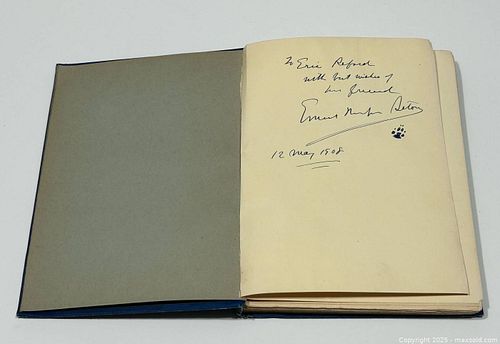 To Eric Reford
with best wishes of
his friend
Ernest Thompson Seton
12 May 1908
Copyright 2025 - maxsold.com